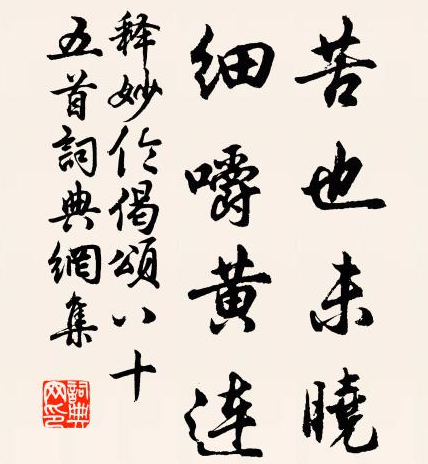 苦也未曉
細嚼黃連
釋妙伦偈頌八十
五首詞典網集
詞典网印